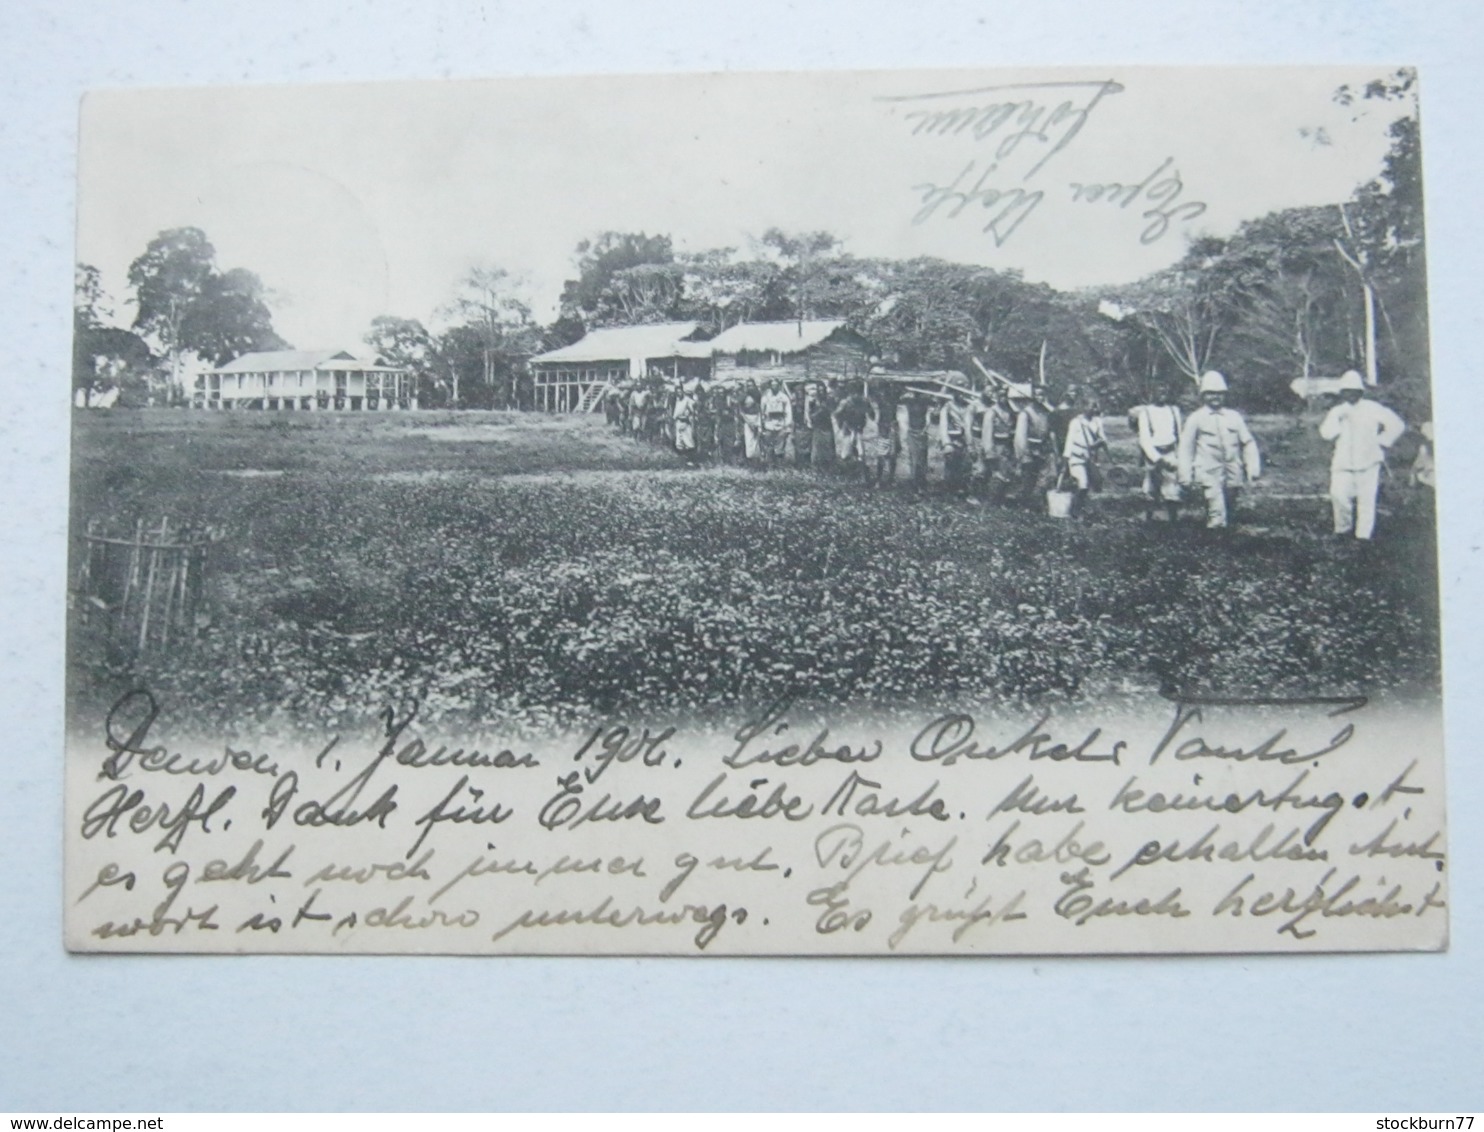 1. Januar 1906. Lieber Onkel u. Tante!
Herzl. Dank für Eure liebe Karte. Nur keine Angst,
es geht noch immer gut. Brief habe erhalten, Ant-
wort ist schon unterwegs. Es grüßt Euch herzlichst
Euer Neffe
Johann
stockburn77
www.delcampe.net